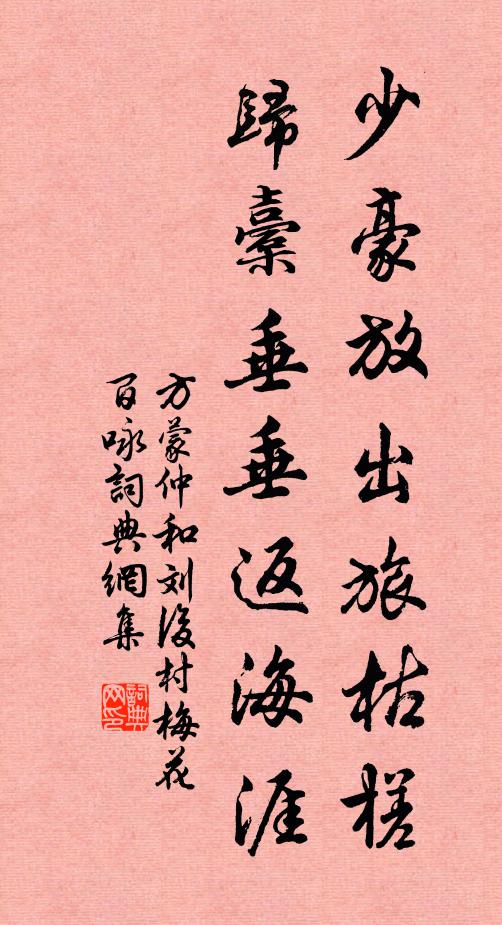 少豪放出旅枯槎
歸橐垂垂返海涯
方蒙仲和刘後村梅花
百咏詞典網集
詞典網印